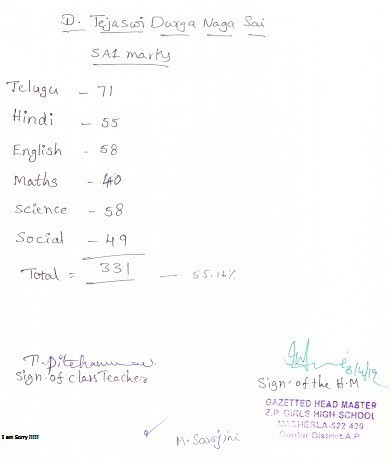 D. Tejaswi Durga Naga Sai
SA1 marks
Telugu - 71
Hindi - 55
English - 58
Maths - 40
Science - 58
Social - 49
Total = 331 - 55.16%
Sign. of class Teacher
8/4/19
Sign. of the H.M
GAZETTED HEAD MASTER
Z.P. GIRLS HIGH SCHOOL
MACHERLA-522 426
Guntur District, A.P
I am Sorry !!!!!
M. Sarojini